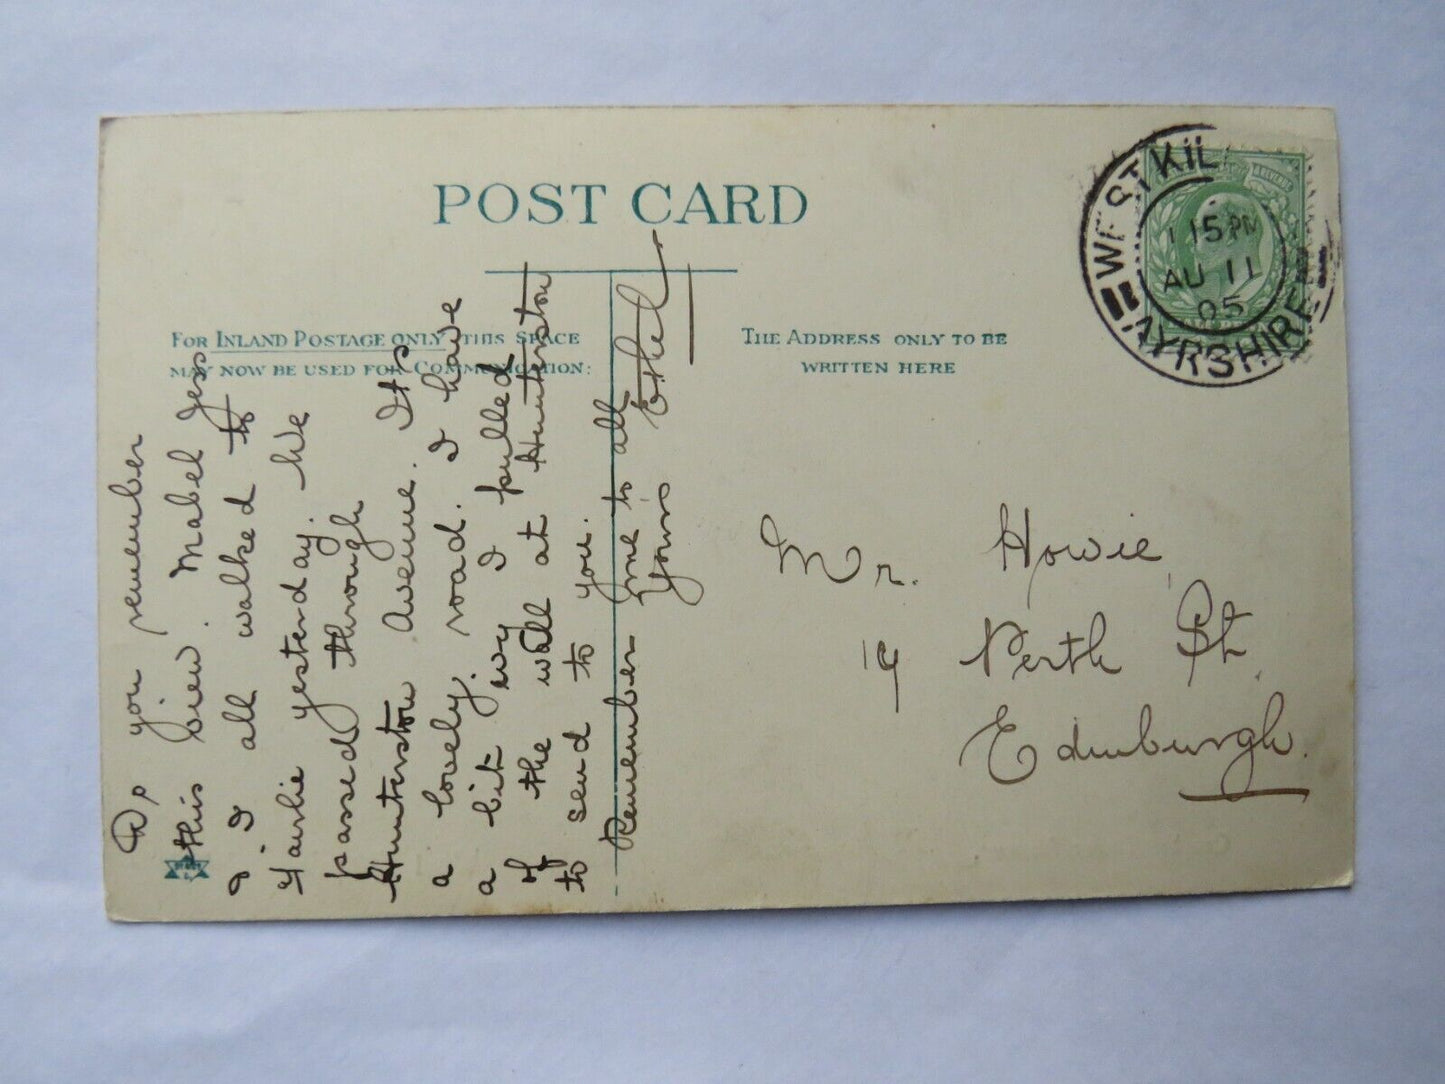 POST CARD
FOR INLAND POSTAGE ONLY THIS SPACE
MAY NOW BE USED FOR COMMUNICATION:
THE ADDRESS ONLY TO BE
WRITTEN HERE
WEST KIL
1 15 PM
AU 11
05
AYRSHIRE
Do you remember
this view. Mabel Jess
& I all walked to
Fairlie yesterday. We
passed through
Hunterston Avenue. It is
a lovely road. I have
a bit ivy I pulled
of the wall at Hunterston
to send to you.
Remember me to all
Yours Ethel
Mr. Howie,
19 Perth St.
Edinburgh.